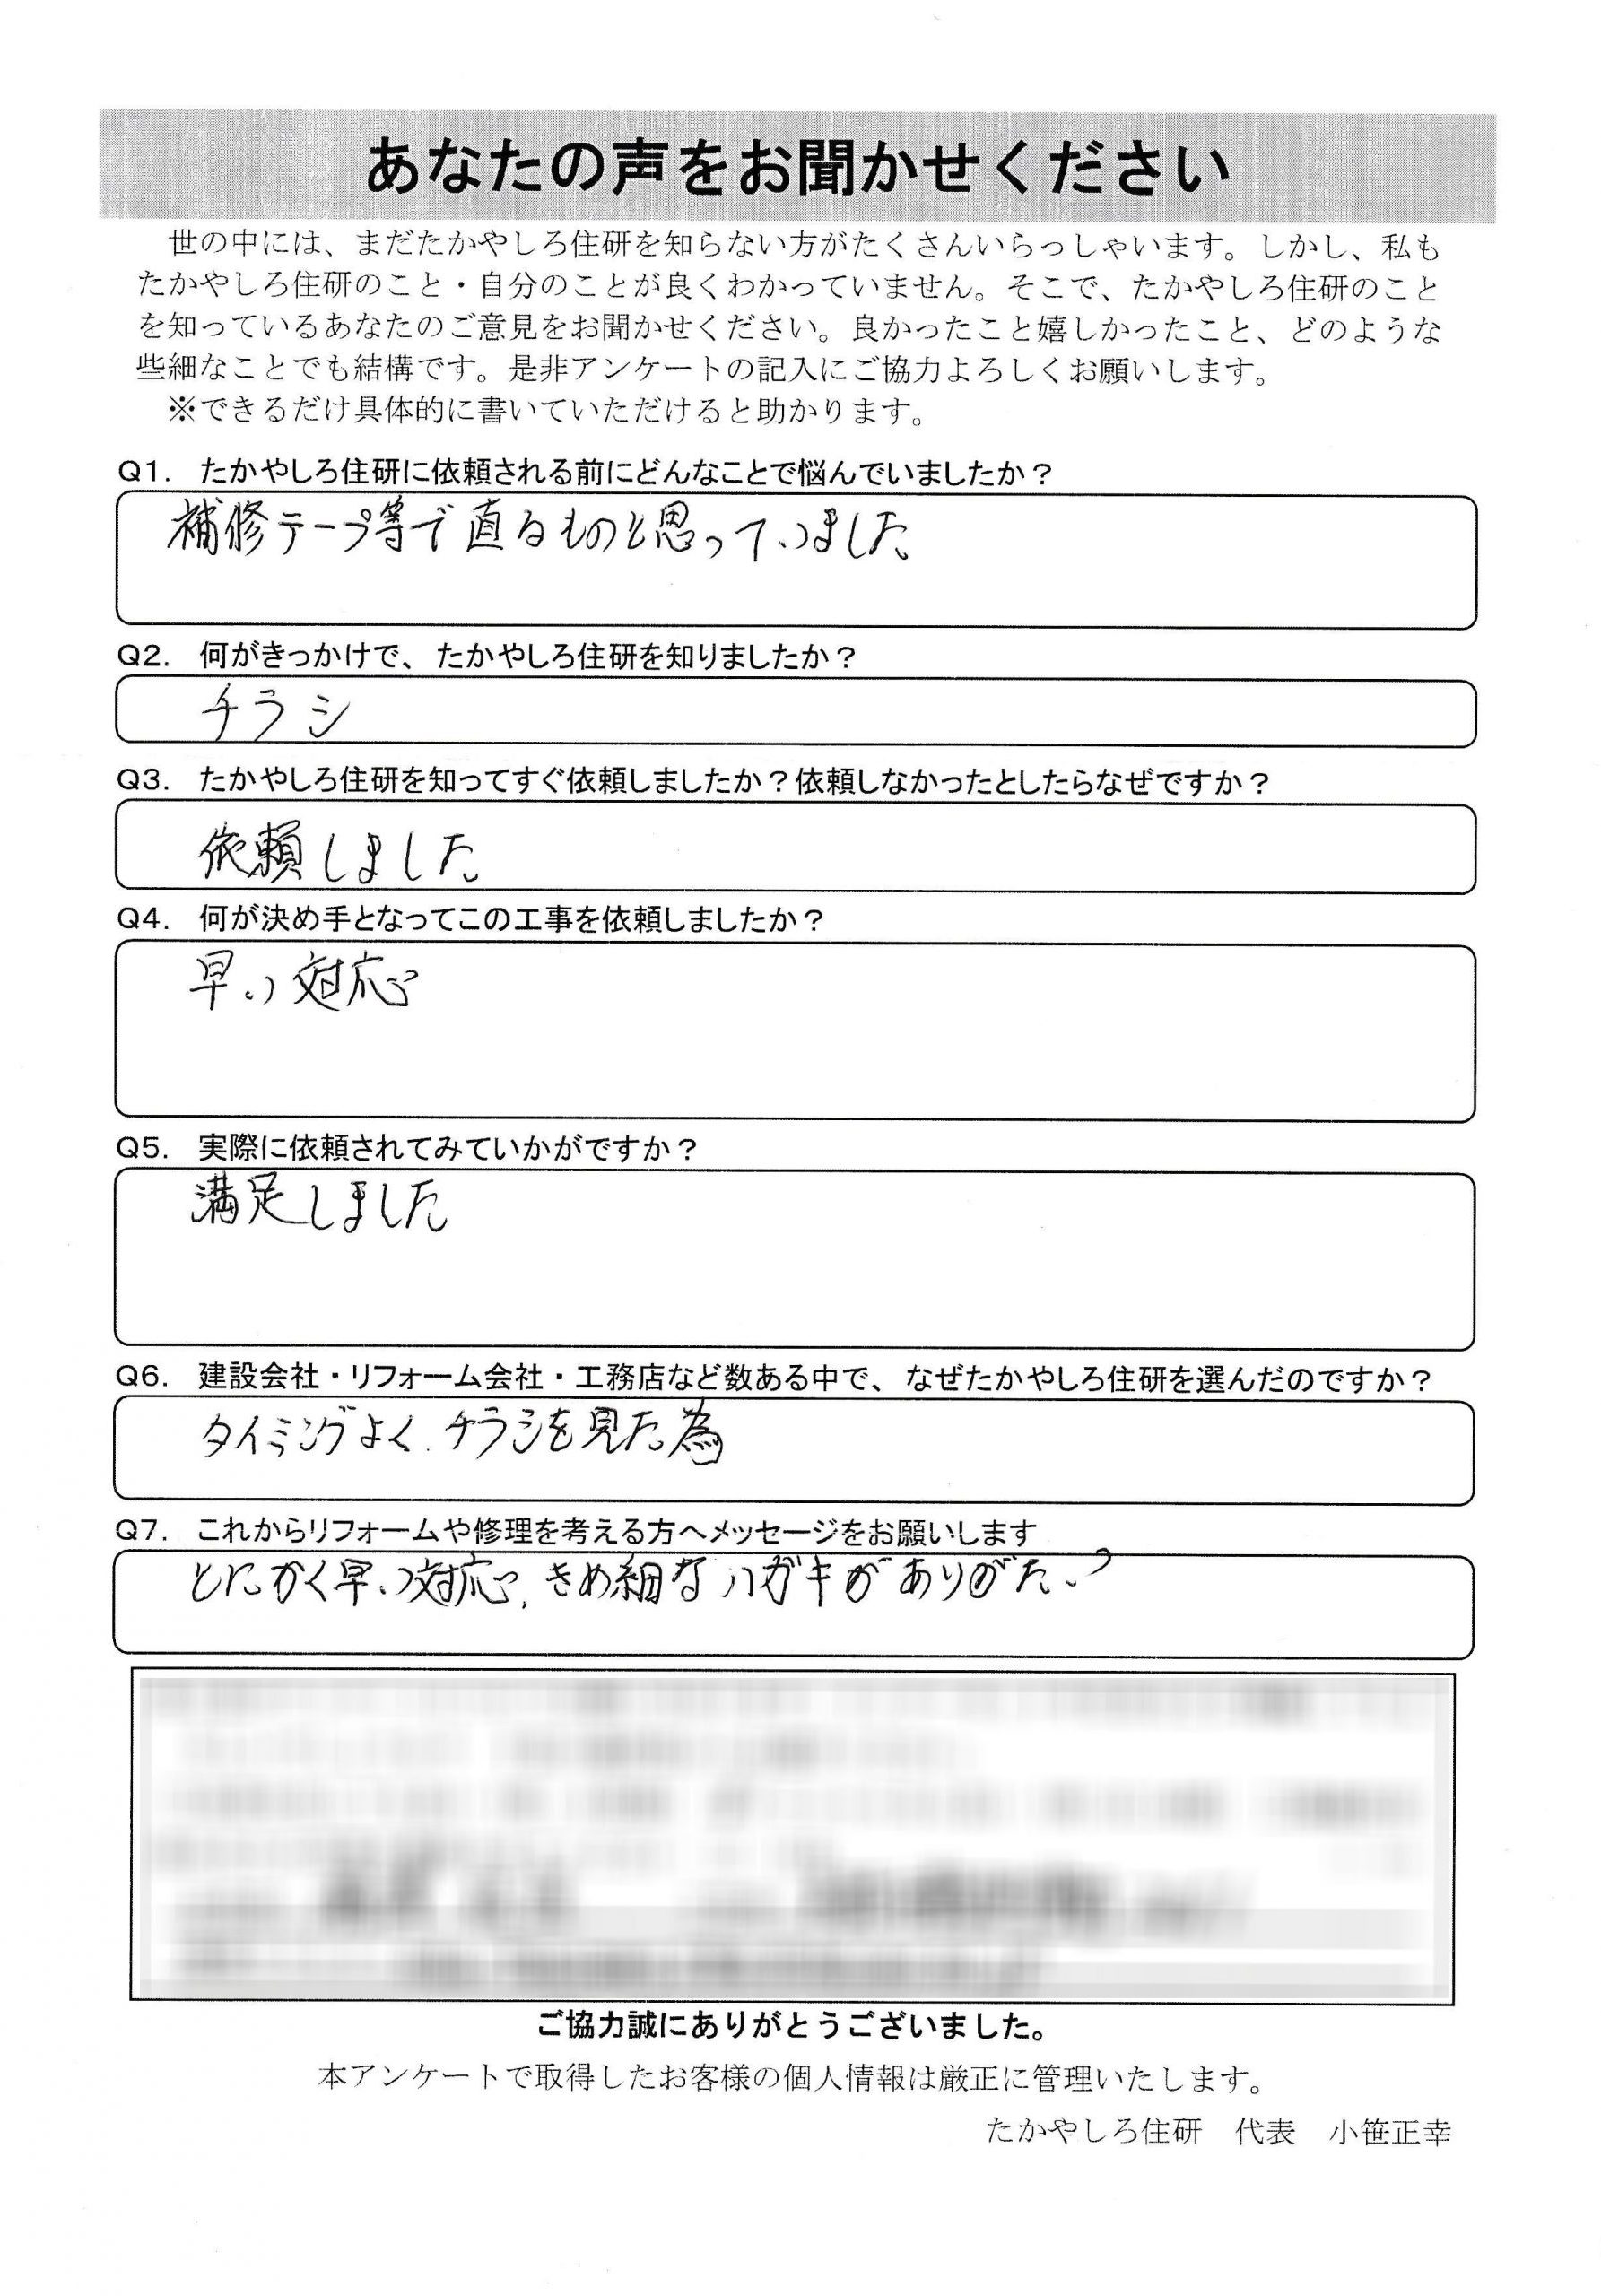 あなたの声をお聞かせください
世の中には、まだたかやしろ住研を知らない方がたくさんいらっしゃいます。しかし、私も
たかやしろ住研のこと・自分のことが良くわかっていません。そこで、たかやしろ住研のこと
を知っているあなたのご意見をお聞かせください。良かったこと嬉しかったこと、どのような
些細なことでも結構です。是非アンケートの記入にご協力よろしくお願いします。
※できるだけ具体的に書いていただけると助かります。
Q1. たかやしろ住研に依頼される前にどんなことで悩んでいましたか？
補修テープ等で直るものと思っていました
Q2. 何がきっかけで、たかやしろ住研を知りましたか？
チラシ
Q3. たかやしろ住研を知ってすぐ依頼しましたか？依頼しなかったとしたらなぜですか？
依頼しました
Q4. 何が決め手となってこの工事を依頼しましたか？
早い対応
Q5. 実際に依頼されてみていかがですか？
満足しました
Q6. 建設会社・リフォーム会社・工務店など数ある中で、なぜたかやしろ住研を選んだのですか？
タイミングよく、チラシを見た為
Q7. これからリフォームや修理を考える方へメッセージをお願いします
とにかく早い対応、きめ細なハガキがありがたい
ご協力誠にありがとうございました。
本アンケートで取得したお客様の個人情報は厳正に管理いたします。
たかやしろ住研 代表 小笹正幸